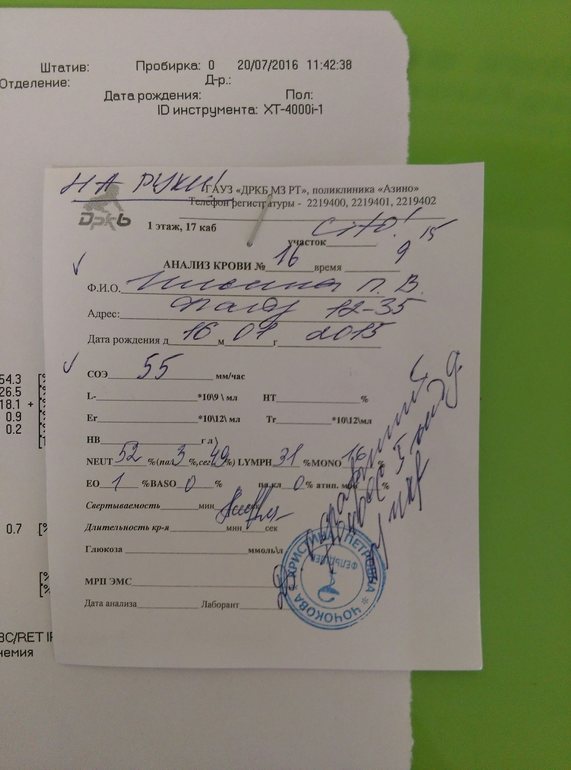 Штатив: Пробирка: 0 20/07/2016 11:42:38
Отделение: Д-р.:
Дата рождения: Пол:
ID инструмента: XT-4000i-1
НА РУКИ!
ГАУЗ «ДРКБ МЗ РТ», поликлиника «Азино»
Телефон регистратуры - 2219400, 2219401, 2219402
Дркб
1 этаж, 17 каб
участок cito! 15
АНАЛИЗ КРОВИ № 16 время 9
Ф.И.О. П. В.
Адрес: 12-35
Дата рождения д 16 м 01 г 2015
СОЭ 55 мм/час
L- *10\9\ мл НТ %
Er *10\12\ мл Tr *10\12\мл
НВ г\л)
NEUT 52 %(па 3 %,сег 49 %) LYMPH 31 %MONO 16 %
EO 1 %BASO 0 % пл.кл 0 % атип.
Свертываемость мин сек
Длительность кр-я мин сек
Глюкоза ммоль\л
МРП ЭМС
Дата анализа Лаборант
ХРИСТИНА ПЕТРОВНА * ЧОЧОКОВА *
54.3 [%
26.5 [
18.1 + [
0.9 [
0.2 [
0.7 [%
[%
BC/RET